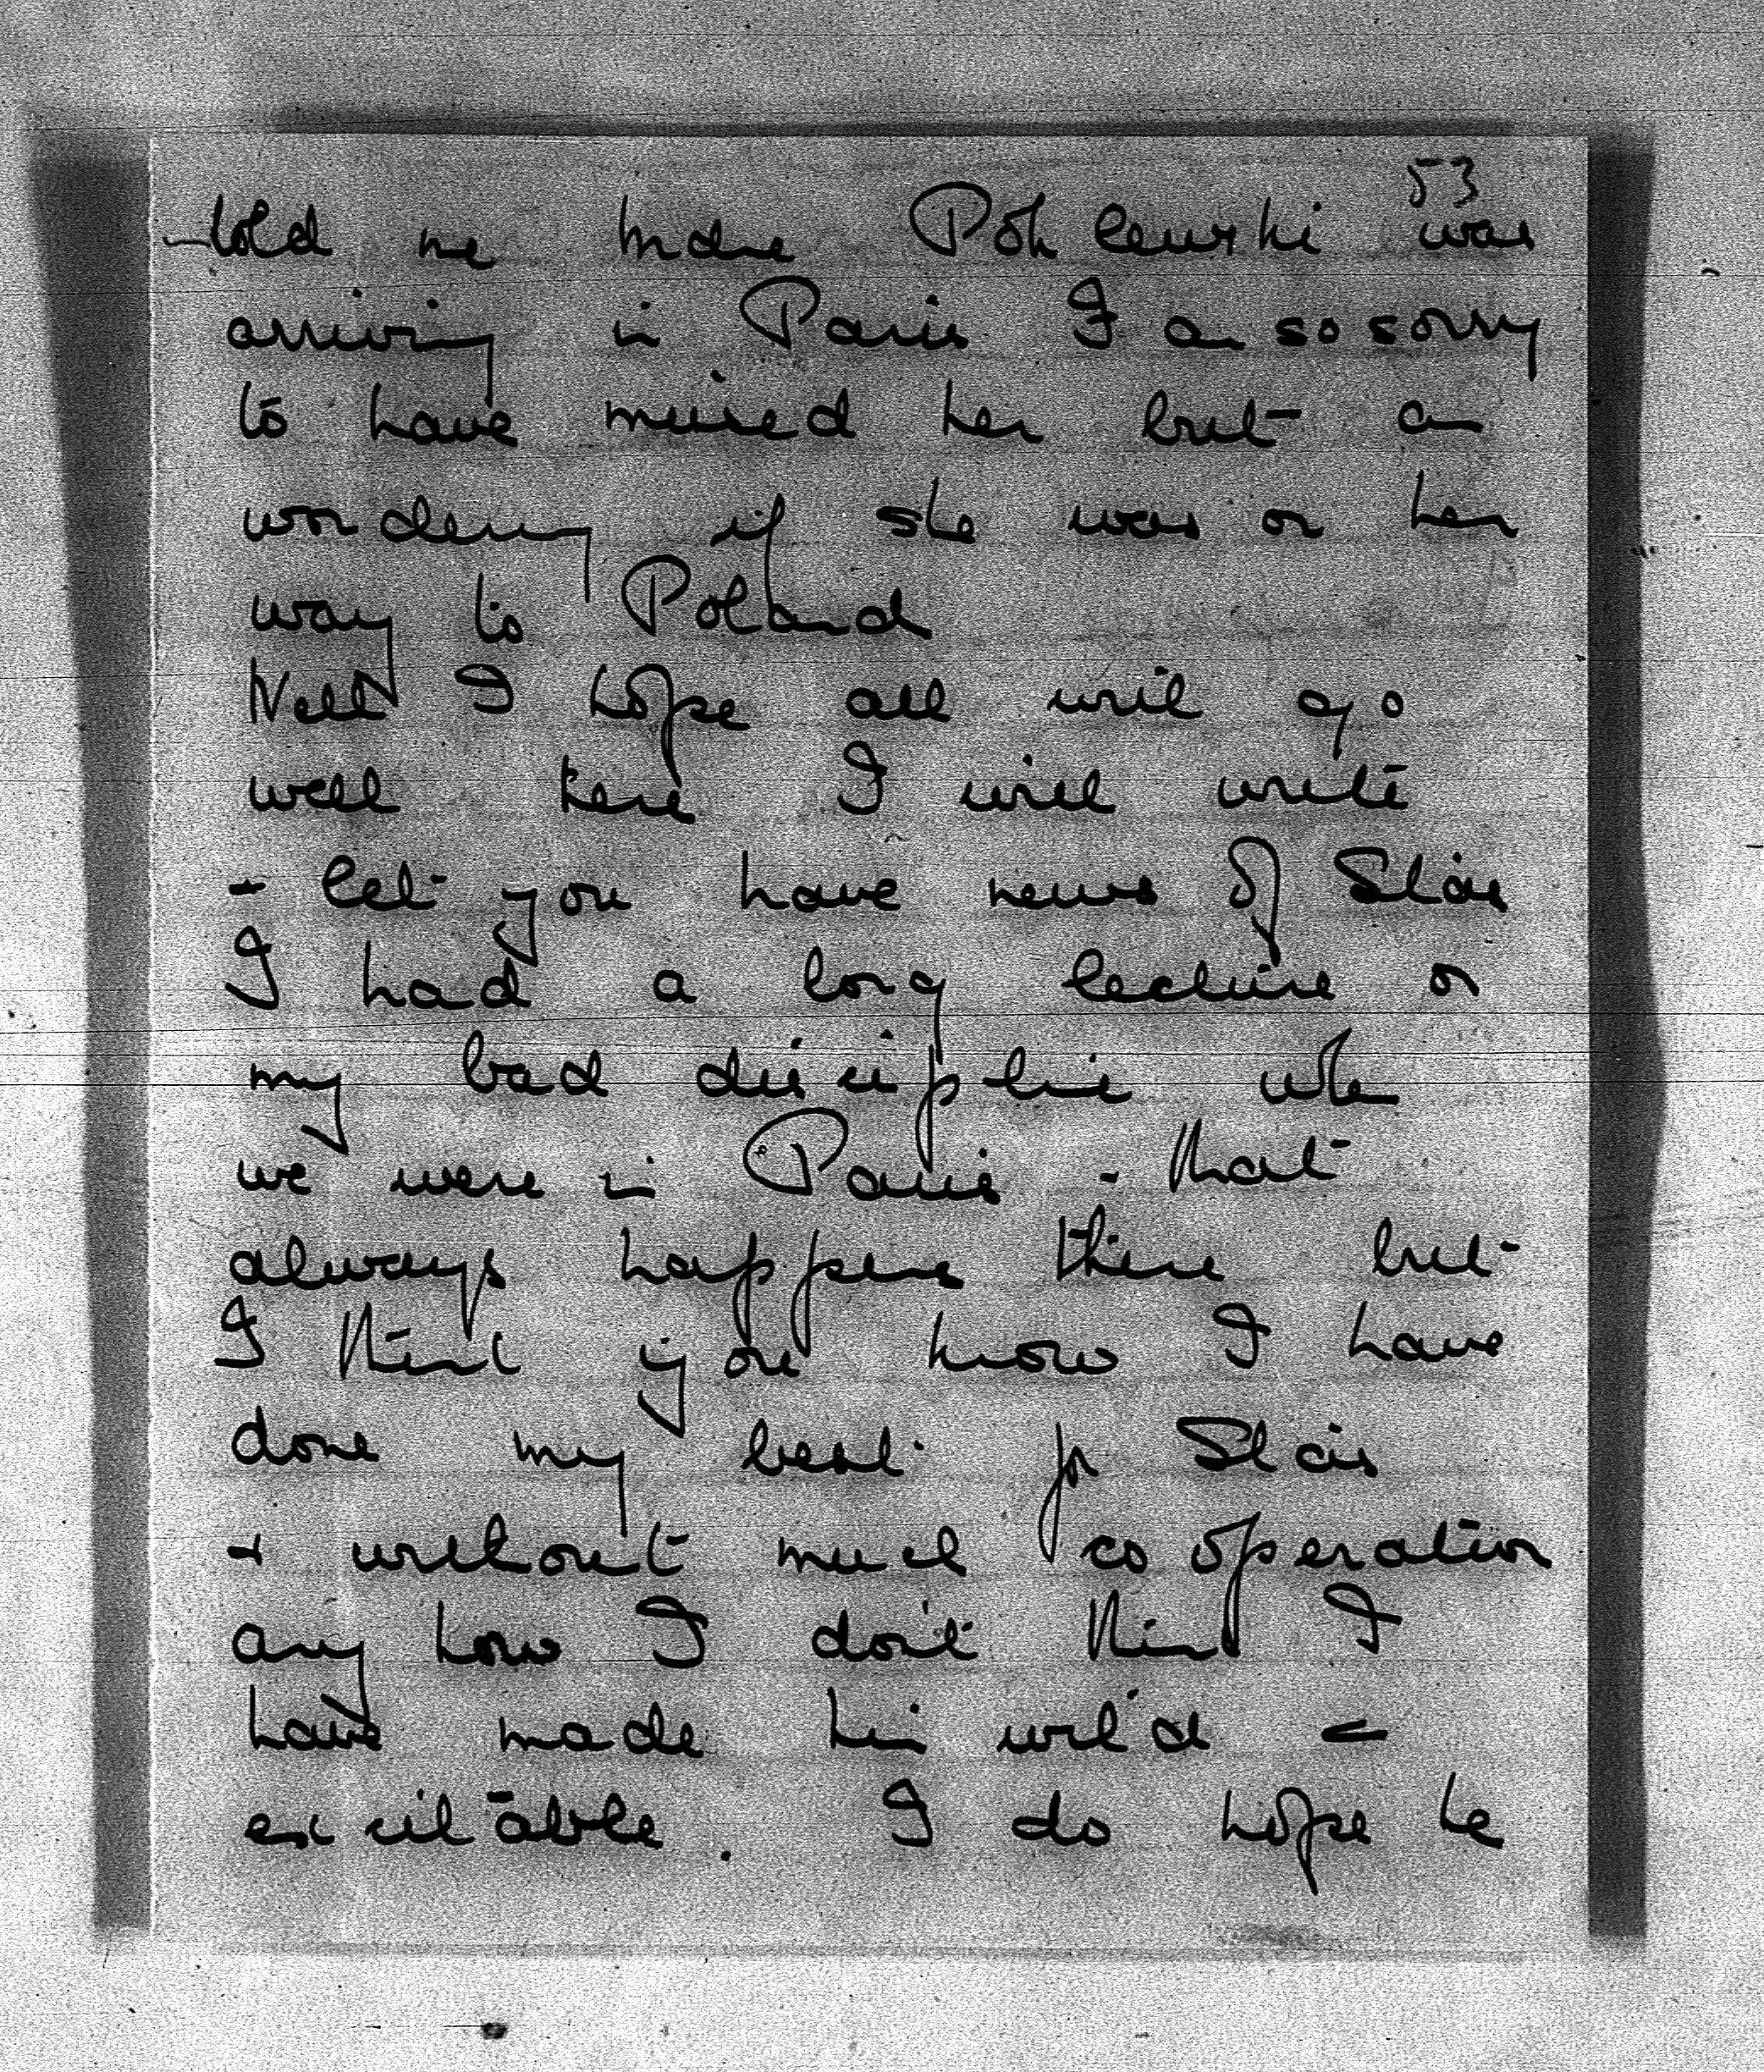 53
told me Mdme Poklewski was
arriving in Paris I am so sorry
to have missed her but am
wondering if she was on her
way to Poland
Well I hope all will go
well here I will write
& let you have news of Stas
I had a long lecture on
my bad discipline when
we were in Paris - that
always happens there but
I think you know I have
done my best for Stas
& without much co operation
any how I don't think I
have made him wild &
excitable. I do hope he